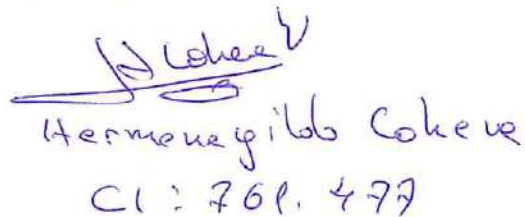 Hermenegildo Cohene
CI: 761.477